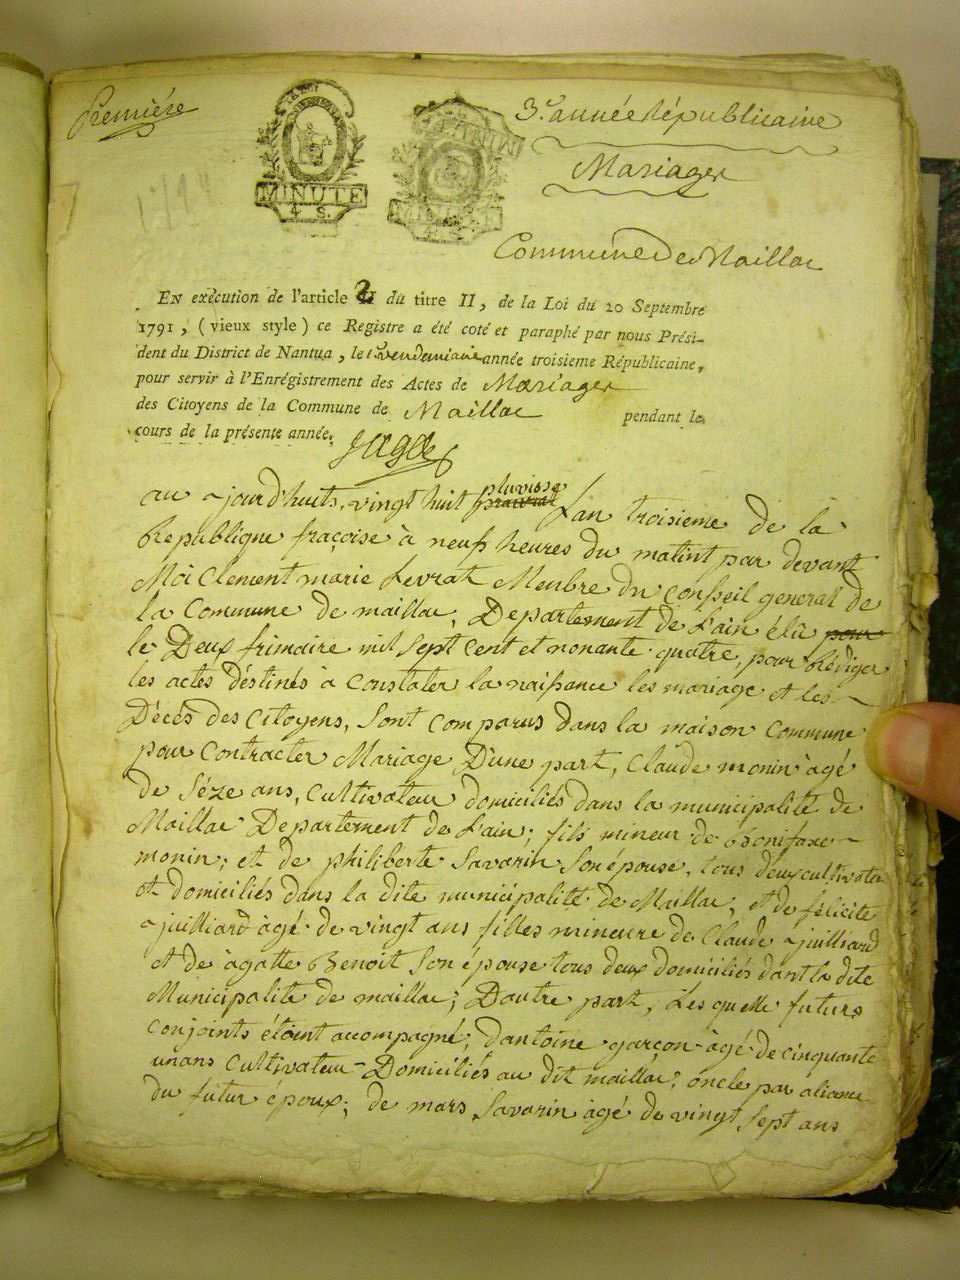 Première
3e. année Républicaine
Mariages
MINUTE
4 S.
Commune De Maillac
EN exécution de l'article 2 du titre II, de la Loi du 20 Septembre
1791, (vieux style) ce Registre a été coté et paraphé par nous Prési-
dent du District de Nantua, le Vendemiaire année troisieme Républicaine,
pour servir à l'Enrégistrement des Actes de Mariages
des Citoyens de la Commune de Maillac pendant le
cours de la présente année.
au ajourd'huis, vingt huit pluviose Lan troisieme de la
Republique fraçoise à neufs heures du matint par devant
Moi Clement marie Levrat Membre du Conseil general de
la Commune de maillac, Departement de L'ain élû pour
le Deux frimaire mil sept cent et nonante quatre, pour Rédiger
les actes déstinés à Constater la naissance les mariage et les
Décés des Citoyens, sont comparus dans la maison commune
pour contracter Mariage D'une part, Claude monin âgé
de séze ans, cultivateur domiciliés dans la municipalité de
Maillac Departement de L'ain; fils mineur de Bonifaxe
monin; et de philiberte Savarin son épouse, tous deux cultivater
et domiciliés dans la dite municipalité de Maillac, et de félicite
ajuilliard âgé de vingt ans filles mineure de Claude ajuilliard
et de àgatte Benoit son épouse tous deux domiciliés dant la dite
Municipalité de maillac; D'autre part, Les quelle futurs
conjoints étoint accompagné; d'antoine garçon âgé de cinquante
unans cultivateur Domiciliés au dit maillac; oncle par aliance
du futur époux; de mars Savarin âgé de vingt sept ans